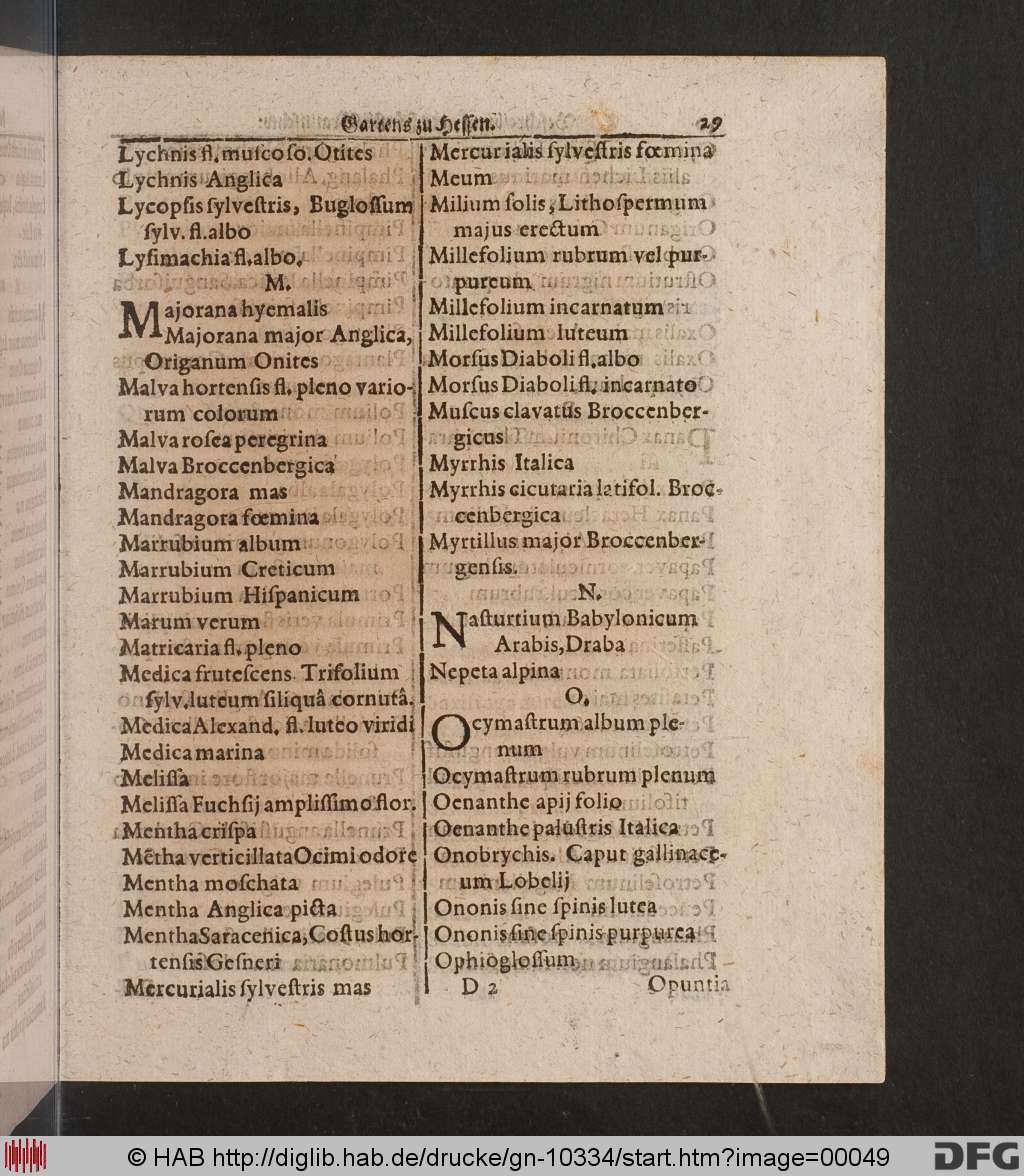 Gartens zu Hessen. 29
Lychnis fl. muſcoſo. Otites
Lychnis Anglica
Lycopſis ſylveſtris, Bugloſſum
ſylv. fl. albo
Lyſimachia fl. albo.
M.
Majorana hyemalis
Majorana major Anglica,
Origanum Onites
Malva hortenſis fl. pleno vario-
rum colorum
Malva roſea peregrina
Malva Broccenbergica
Mandragora mas
Mandragora fœmina
Marrubium album
Marrubium Creticum
Marrubium Hiſpanicum
Marum verum
Matricaria fl. pleno
Medica fruteſcens. Trifolium
ſylv. luteum ſiliquâ cornutâ.
Medica Alexand. fl. luteo viridi
Medica marina
Meliſſa
Meliſſa Fuchſij ampliſſimo flor.
Mentha criſpa
Mẽtha verticillata Ocimi odore
Mentha moſchata
Mentha Anglica picta
Mentha Saracenica, Coſtus hor-
tenſis Geſneri
Mercurialis ſylveſtris mas
Mercurialis ſylveſtris fœmina
Meum
Milium ſolis, Lithoſpermum
majus erectum
Millefolium rubrum vel pur-
pureum
Millefolium incarnatum
Millefolium luteum
Morſus Diaboli fl. albo
Morſus Diaboli fl. incarnato
Muſcus clavatus Broccenber-
gicus
Myrrhis Italica
Myrrhis cicutaria latifol. Broc-
cenbergica
Myrtillus major Broccenber-
genſis.
N.
Naſturtium Babylonicum
Arabis, Draba
Nepeta alpina
O.
Ocymaſtrum album ple-
num
Ocymaſtrum rubrum plenum
Oenanthe apij folio
Oenanthe paluſtris Italica
Onobrychis. Caput gallinace-
um Lobelij
Ononis ſine ſpinis lutea
Ononis ſine ſpinis purpurea
Ophiogloſſum
D 2 Opuntia
© HAB http://diglib.hab.de/drucke/gn-10334/start.htm?image=00049
DFG